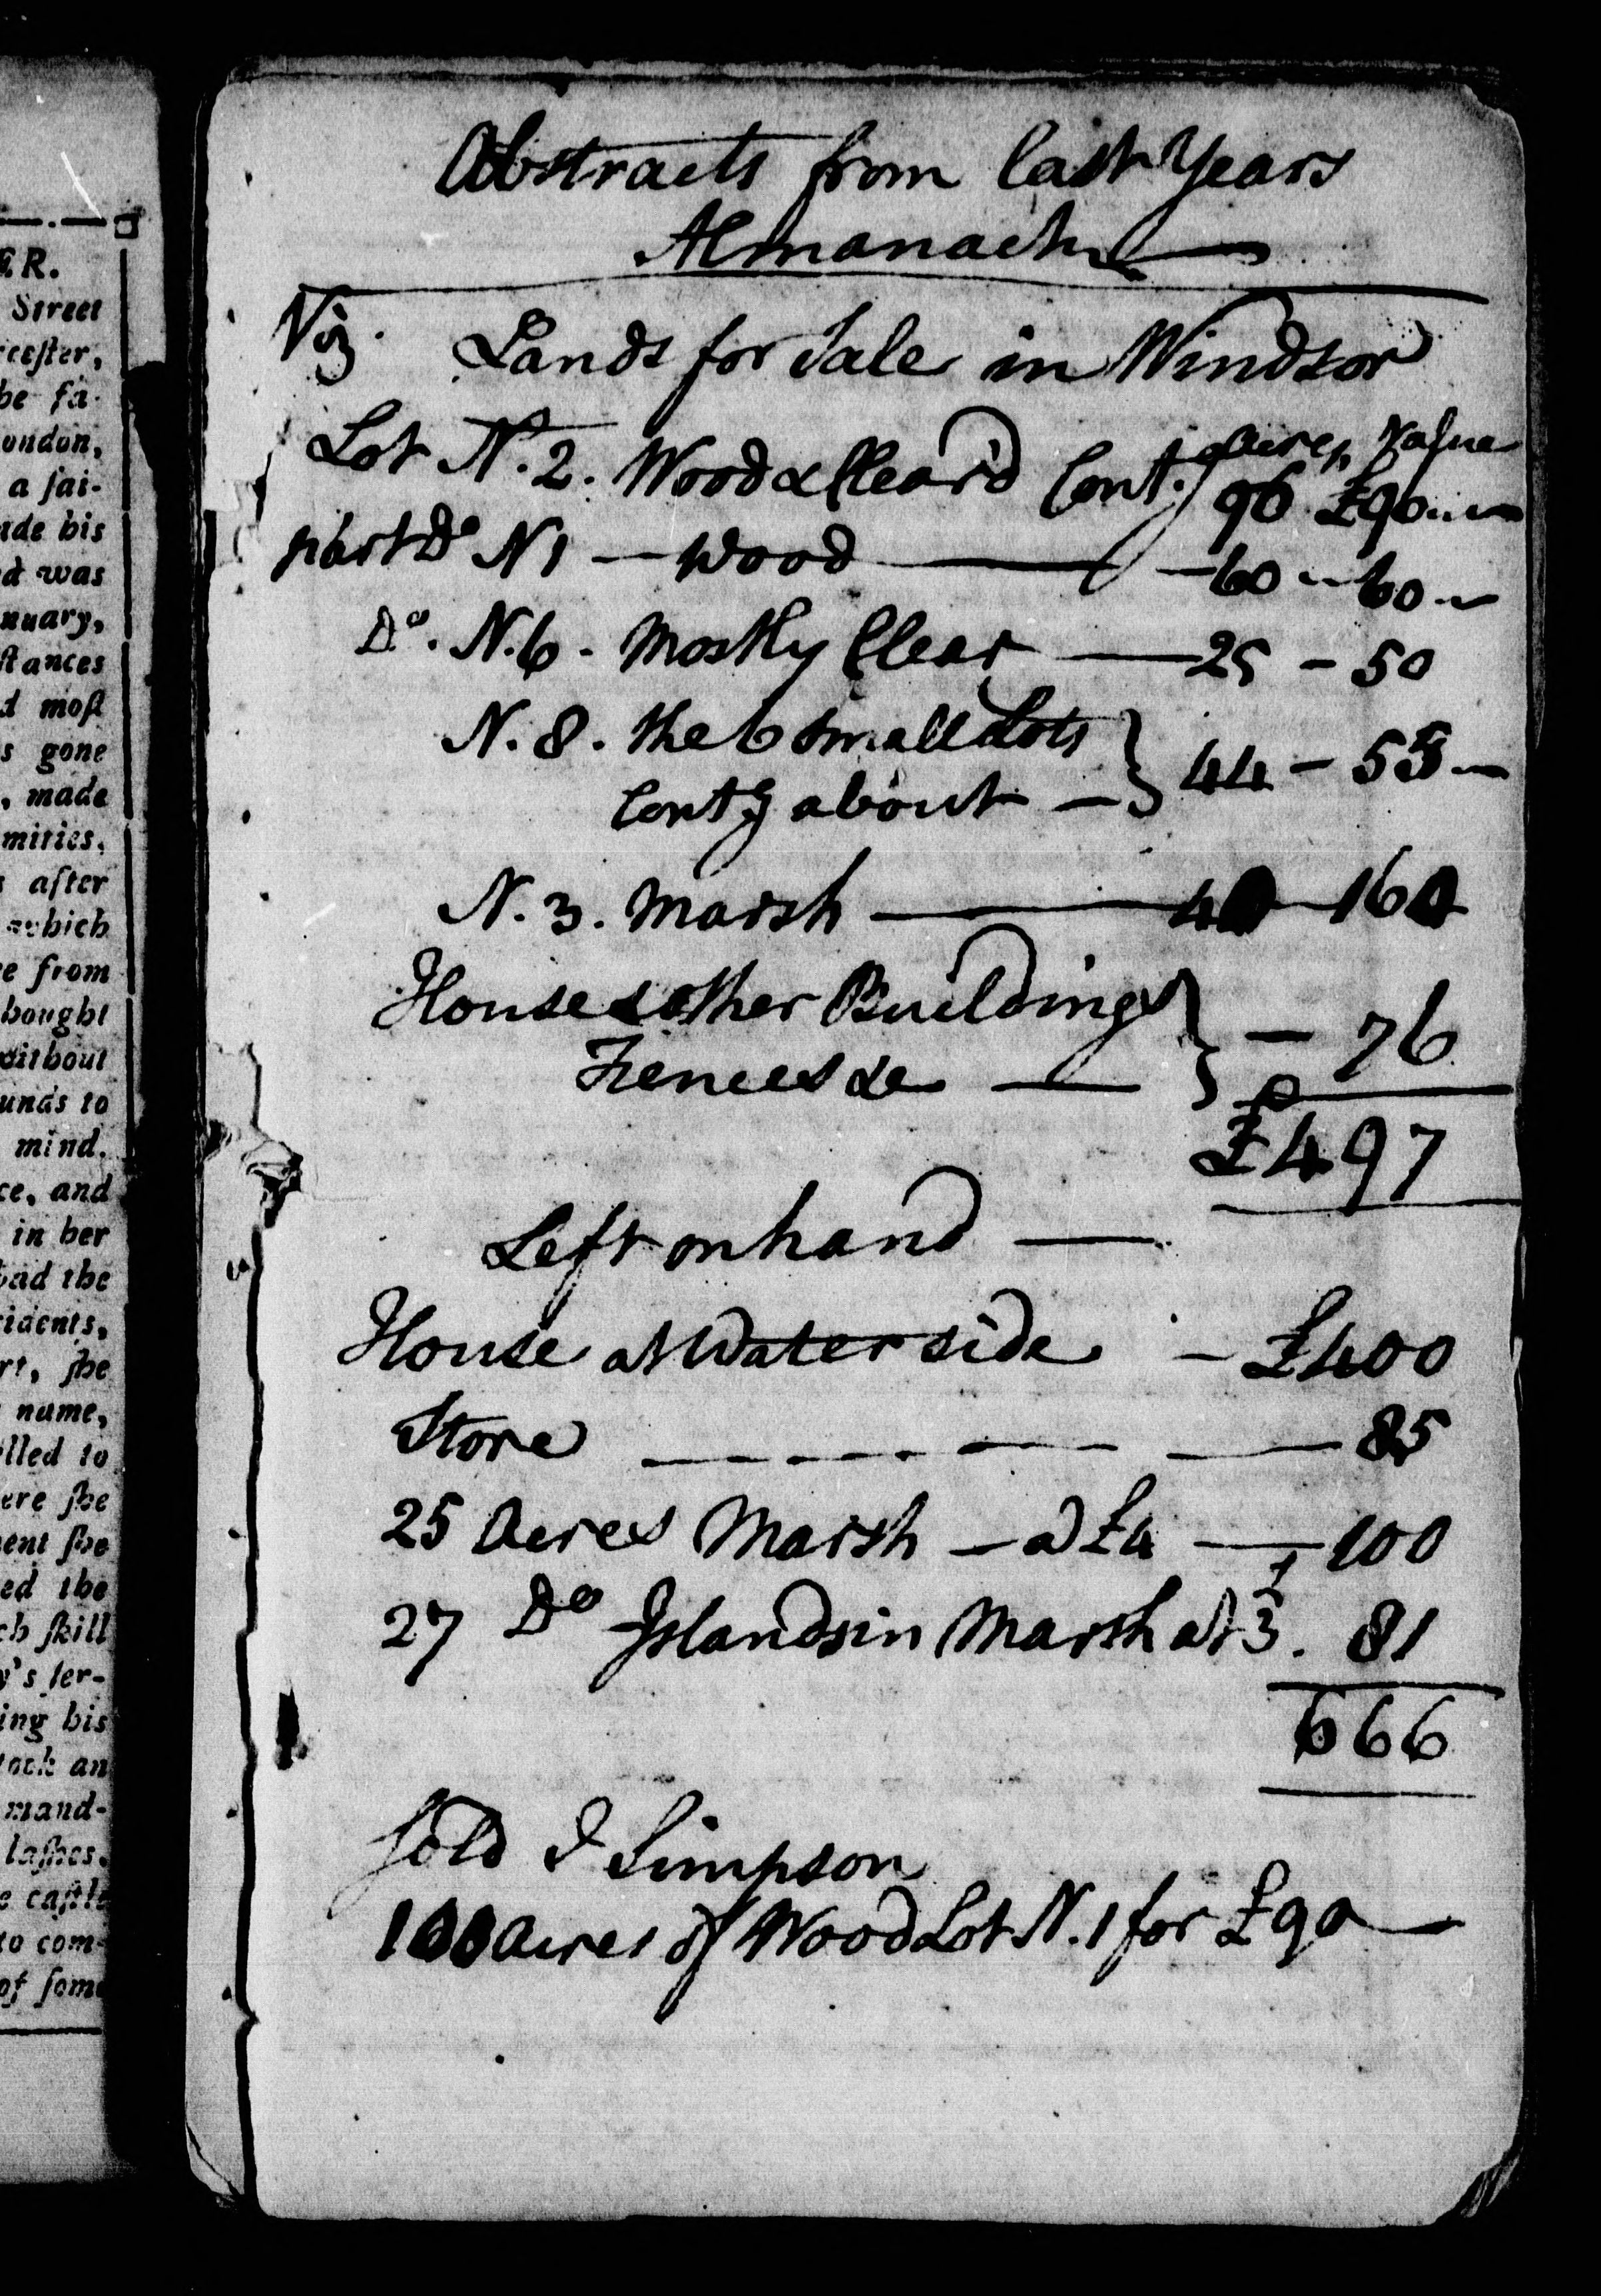 ER.
Street
cester,
be fa-
ondon,
a jai-
ide his
d was
nuary,
stances
d most
s gone
, made
mities,
after
which
e from
bought
without
unds to
mind.
ce, and
in her
had the
cidents,
rt, she
name,
lled to
ere she
ent she
ed the
ch skill
y's ser-
ing his
ock an
mand-
lashes.
e castle
to com-
of some
Abstracts from last Years
Almanack
Viz. Lands for Sale in Windsor
Acres Value
Lot N. 2. Wood & Clear'd Cont.g 96 £90
part Do N 1 — Wood — 60 - 60
Do. N. 6 - Mostly Clear — 25 - 50
N. 8. the 6 small Lots
Contg about — } 44 - 55 —
N. 3. Marsh — 40 — 160
House & other Buildings
Fences &c — } — 76
£497
Left on hand —
House at Water side - £400
Store — 85
25 Acres Marsh — a £4 — 100
27 Do Islands in Marsh at 3. 81
666
Sold J Simpson
100 Acres of Wood Lot N. 1 for £90 —